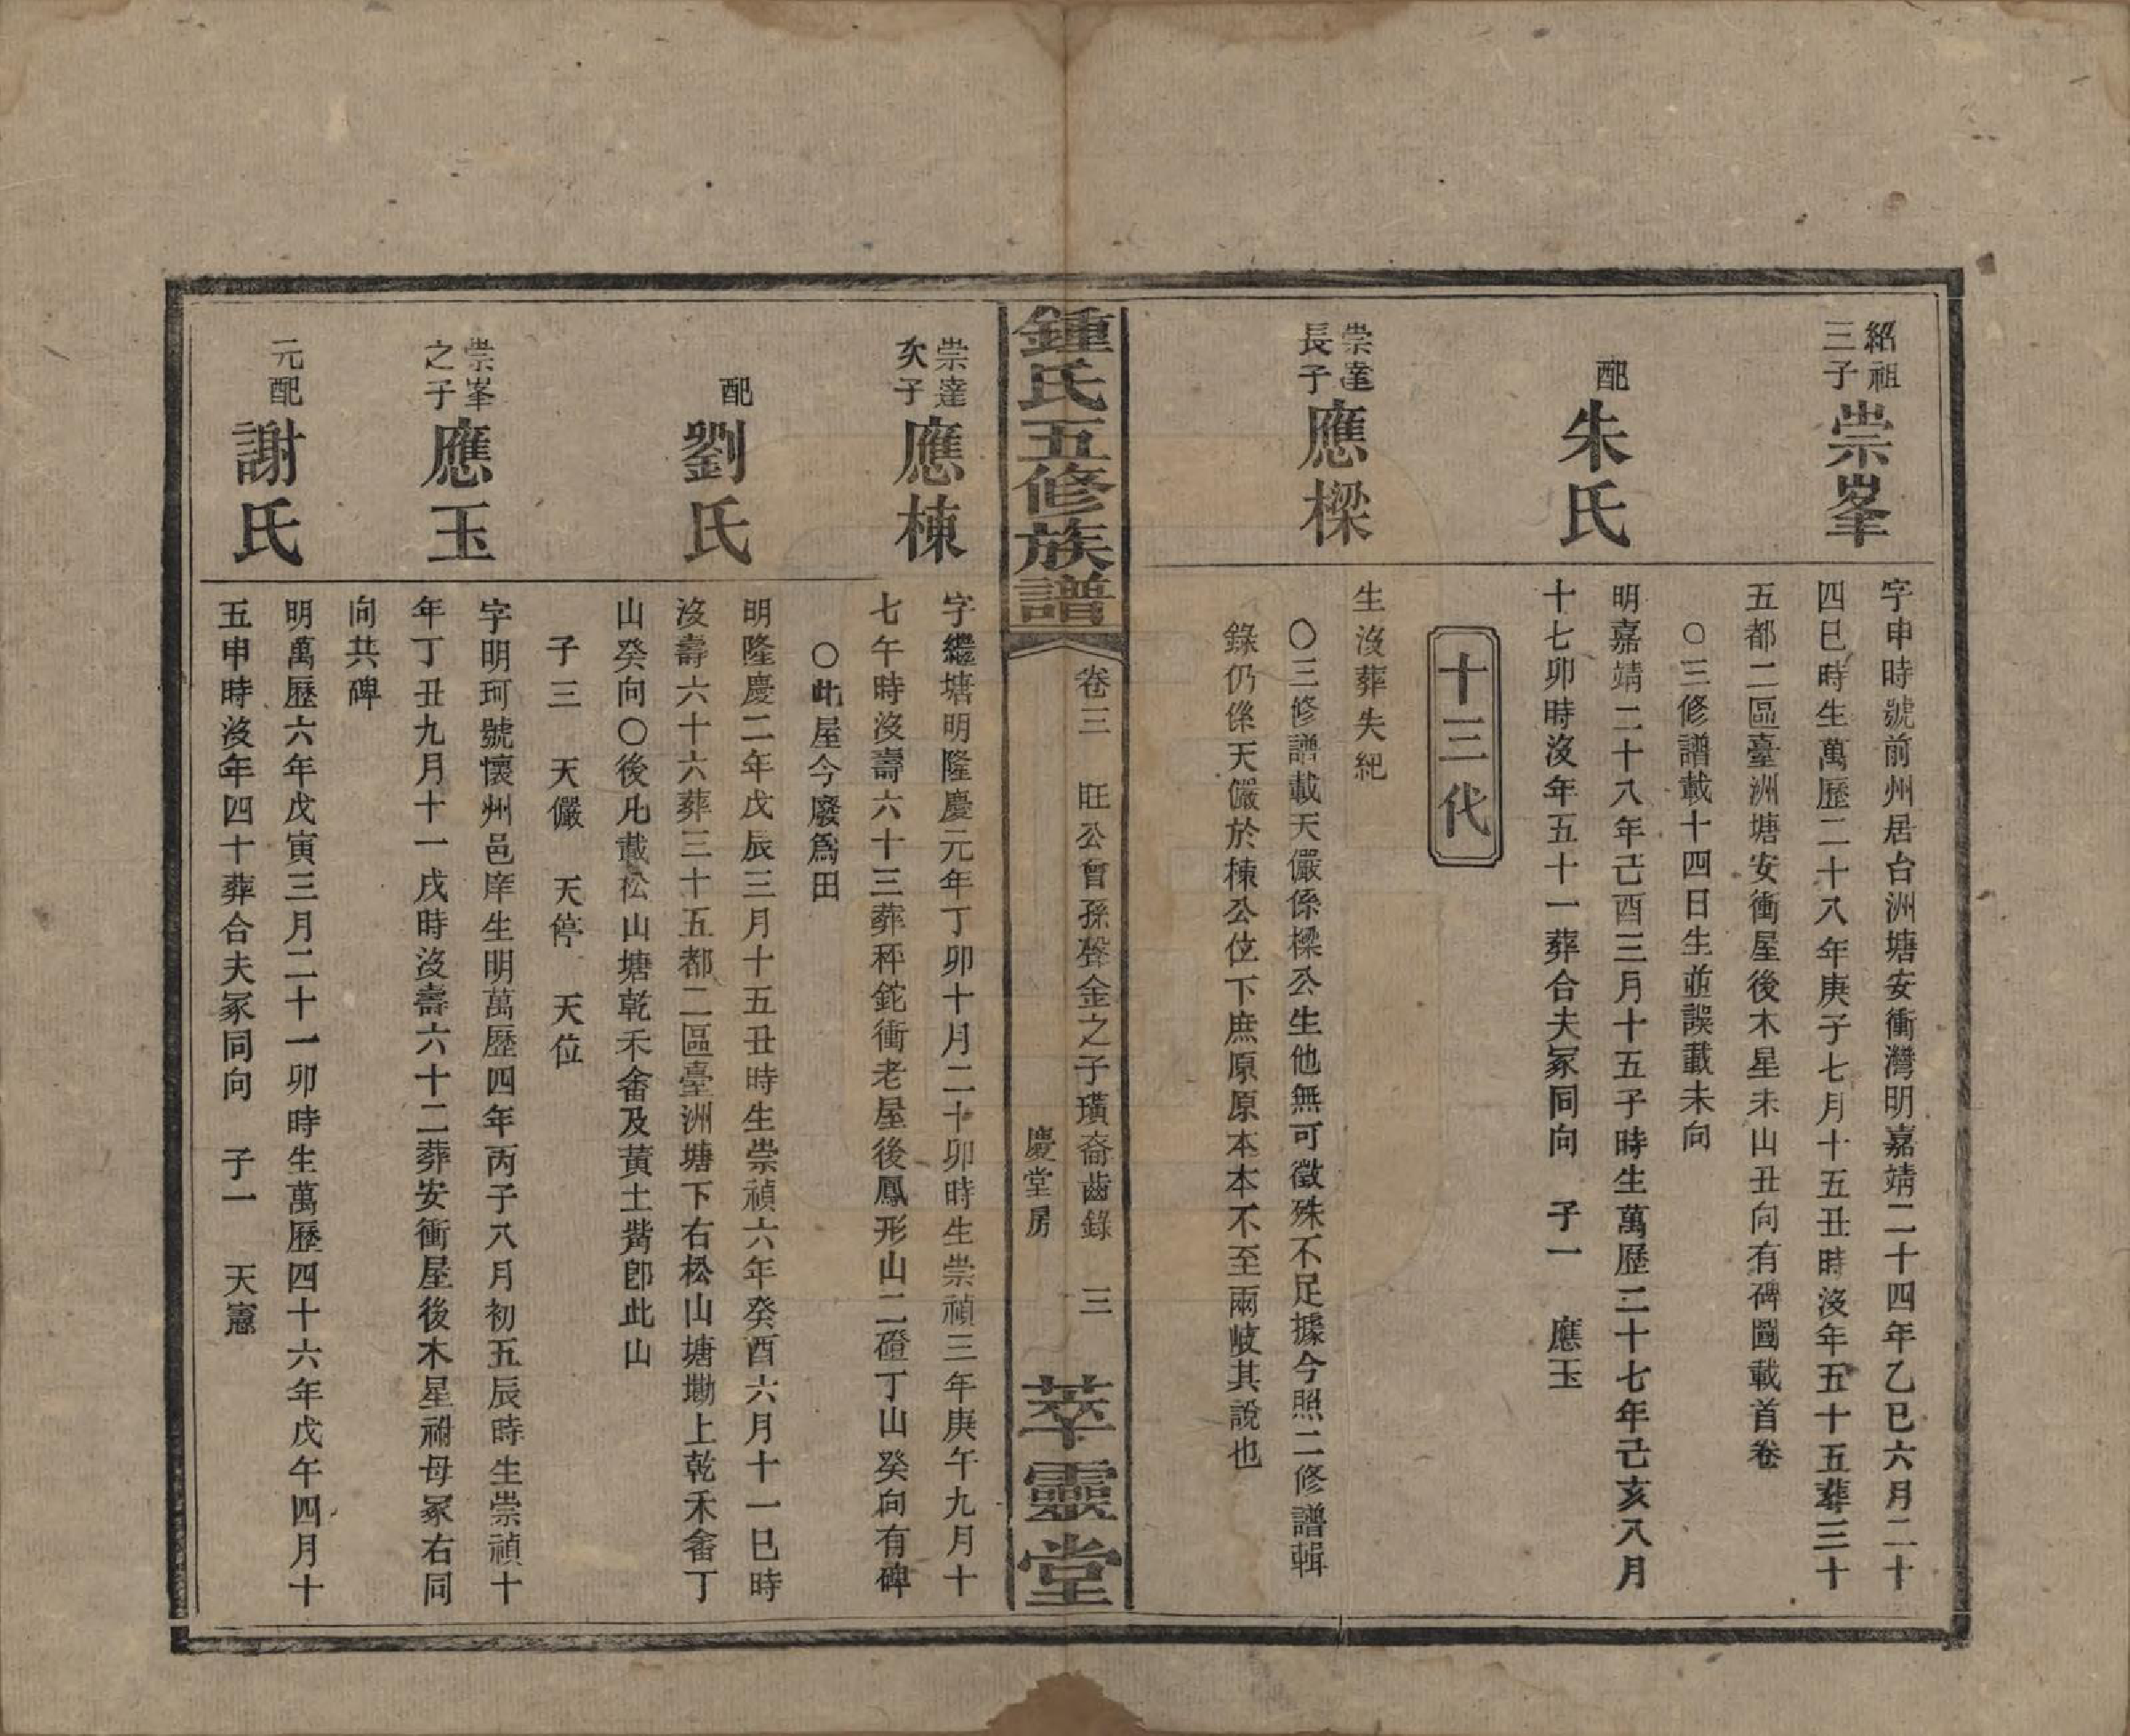 紹祖
三子
崇峯
字申時號前州居台洲塘安衝灣明嘉靖二十四年乙巳六月二十
四巳時生萬歷二十八年庚子七月十五丑時沒年五十五葬三十
五都二區臺洲塘安衝屋後木星未山丑向有碑圖載首卷
○三修譜載十四日生並誤載未向
配
朱氏
明嘉靖二十八年己酉三月十五子時生萬歷二十七年己亥八月
十七卯時沒年五十一葬合夫冢同向 子一 應玉
十三代
崇達
長子
應樑
生沒葬失紀
○三修譜載天儼係樑公生他無可徵殊不足據今照二修譜輯
錄仍係天儼於棟公位下庶原原本本不至兩岐其說也
鍾氏五修族譜
卷三 旺公曾孫聲金之子璜裔齒錄 三
慶堂房
萃靈堂
崇達
次子
應棟
字繼塘明隆慶元年丁卯十月二十卯時生崇禎三年庚午九月十
七午時沒壽六十三葬秤鉈衝老屋後鳳形山二磴丁山癸向有碑
○此屋今廢爲田
配
劉氏
明隆慶二年戊辰三月十五丑時生崇禎六年癸酉六月十一巳時
沒壽六十六葬三十五都二區臺洲塘下右松山塘墈上乾禾畬丁
山癸向○後凡載松山塘乾禾畬及黃土嘴卽此山
子三 天儼 天停 天位
崇峯
之子
應玉
字明珂號懷州邑庠生明萬歷四年丙子八月初五辰時生崇禎十
年丁丑九月十一戌時沒壽六十二葬安衝屋後木星祔母冢右同
向共碑
元配
謝氏
明萬歷六年戊寅三月二十一卯時生萬歷四十六年戊午四月十
五申時沒年四十葬合夫冢同向 子一 天憲